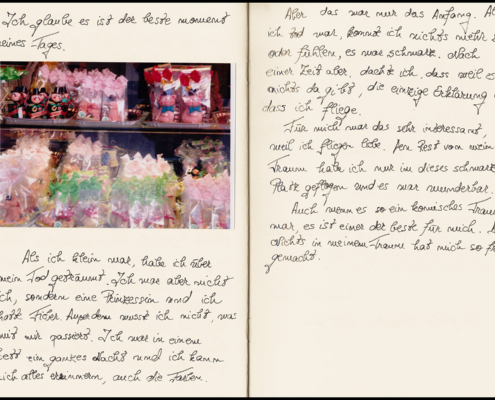 Ich glaube es ist der beste moment
eines Tages.
Als ich klein war, habe ich über
mein Tod geträumt. Ich war aber nicht
ich, sondern eine Prinzessin und ich
hatte Fiber. Außerdem wusst ich nicht, was
mit mir passiert. Ich war in einem
Bett ein ganzes Nacht und ich kann
mich alles erinnern, auch die Farben.
Aber das war nur das Anfang. A
ich tod war, konnt ich nichts mehr s
oder fühlen, es war schwarz. Nach
einer Zeit aber dacht ich, dass weil es
nichts da gibt, die einzige Erklärung
dass ich fliege.
Für mich war das sehr interessant,
weil ich fliegen liebe. Den Rest vom mein
Traum habe ich nur in dieses schwarz
Platz geflogen und es war wunderbar.
Auch wenn es so ein komisches Traum
war, es ist einer der beste für mich.
Nichts in meinem Traum hat mich so
gemacht.